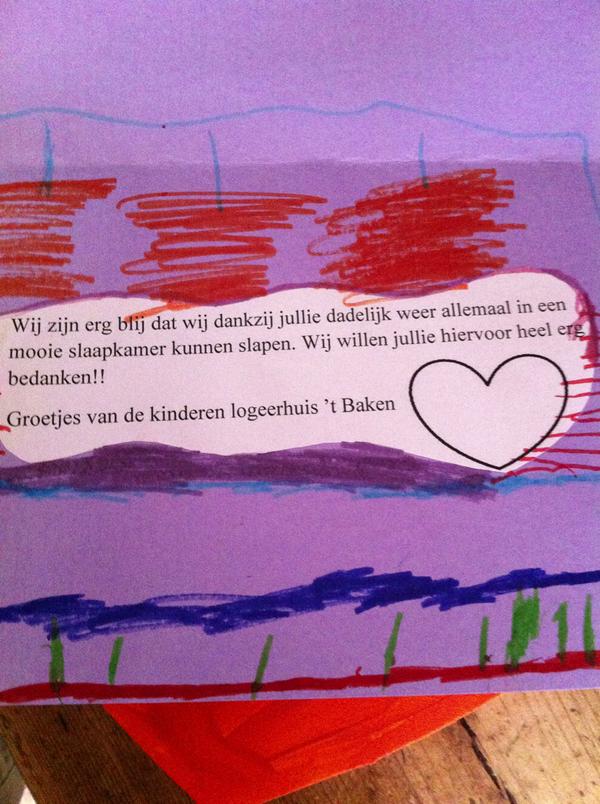 Wij zijn erg blij dat wij dankzij jullie dadelijk weer allemaal in een
mooie slaapkamer kunnen slapen. Wij willen jullie hiervoor heel erg
bedanken!!
Groetjes van de kinderen logeerhuis ’t Baken